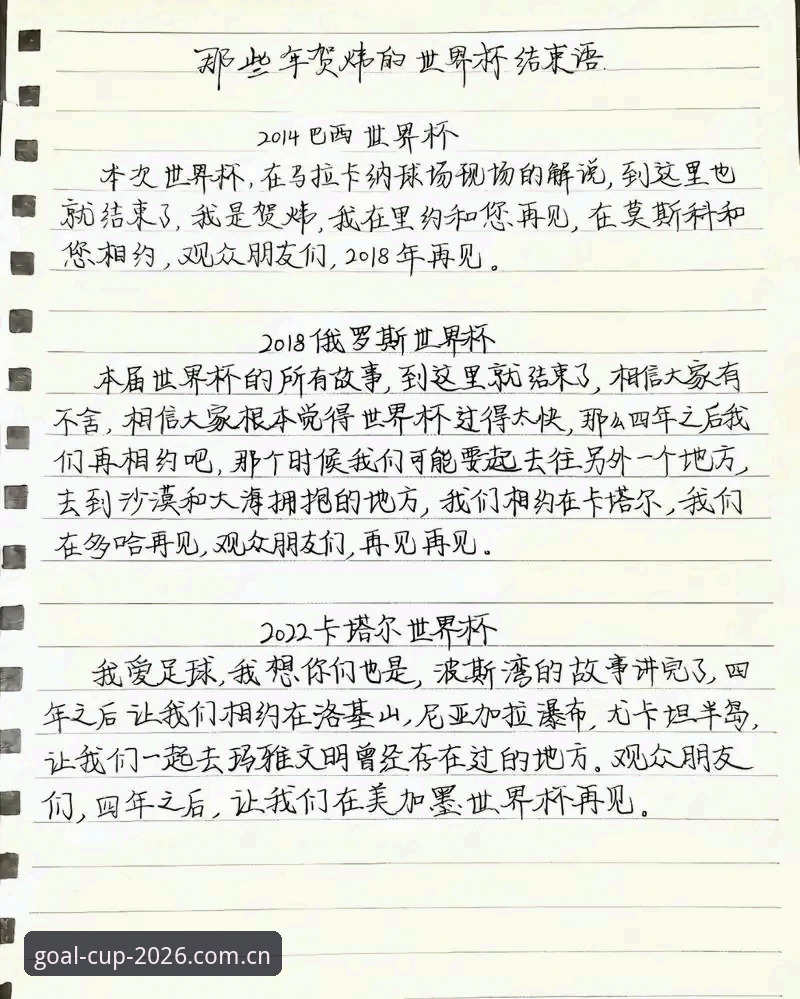 那些年贺炜的世界杯结束语.
2014巴西世界杯
本次世界杯,在马拉卡纳球场现场的解说,到这里也
就结束了,我是贺炜,我在里约和您再见,在莫斯科和
您相约,观众朋友们,2018年再见。
2018俄罗斯世界杯
本届世界杯的所有故事,到这里就结束了,相信大家有
不舍,相信大家根本觉得世界杯过得太快,那么四年之后我
们再相约吧,那个时候我们可能要起去往另外一个地方,
去到沙漠和大海拥抱的地方,我们相约在卡塔尔,我们
在多哈再见,观众朋友们,再见再见。
2022卡塔尔世界杯
我爱足球,我想你们也是,波斯湾的故事讲完了,四
年之后让我们相约在洛基山,尼亚加拉瀑布,尤卡坦半岛,
让我们一起去玛雅文明曾经存在过的地方。观众朋友
们,四年之后,让我们在美加墨世界杯再见。
goal-cup-2026.com.cn